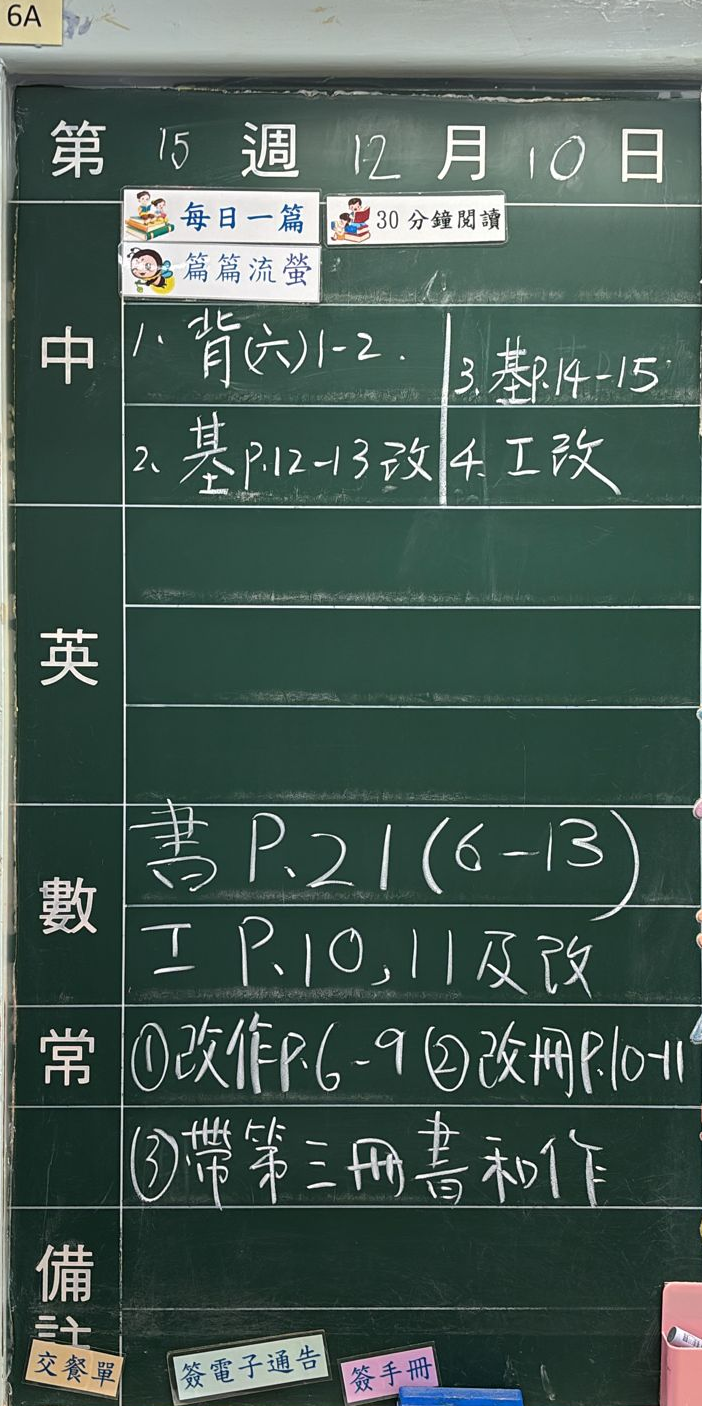 6A
第 15 週 12 月 10 日
每日一篇 30分鐘閱讀
篇篇流螢
中
1. 背(六)1-2.
2. 基P.12-13改
3. 基P.14-15
4. 工改
英
數
書 P.21(6-13)
工 P.10,11及改
常
①改作P.6-9 ②改冊P.10-11
③帶第三冊書和作
備註
交餐單 簽電子通告 簽手冊